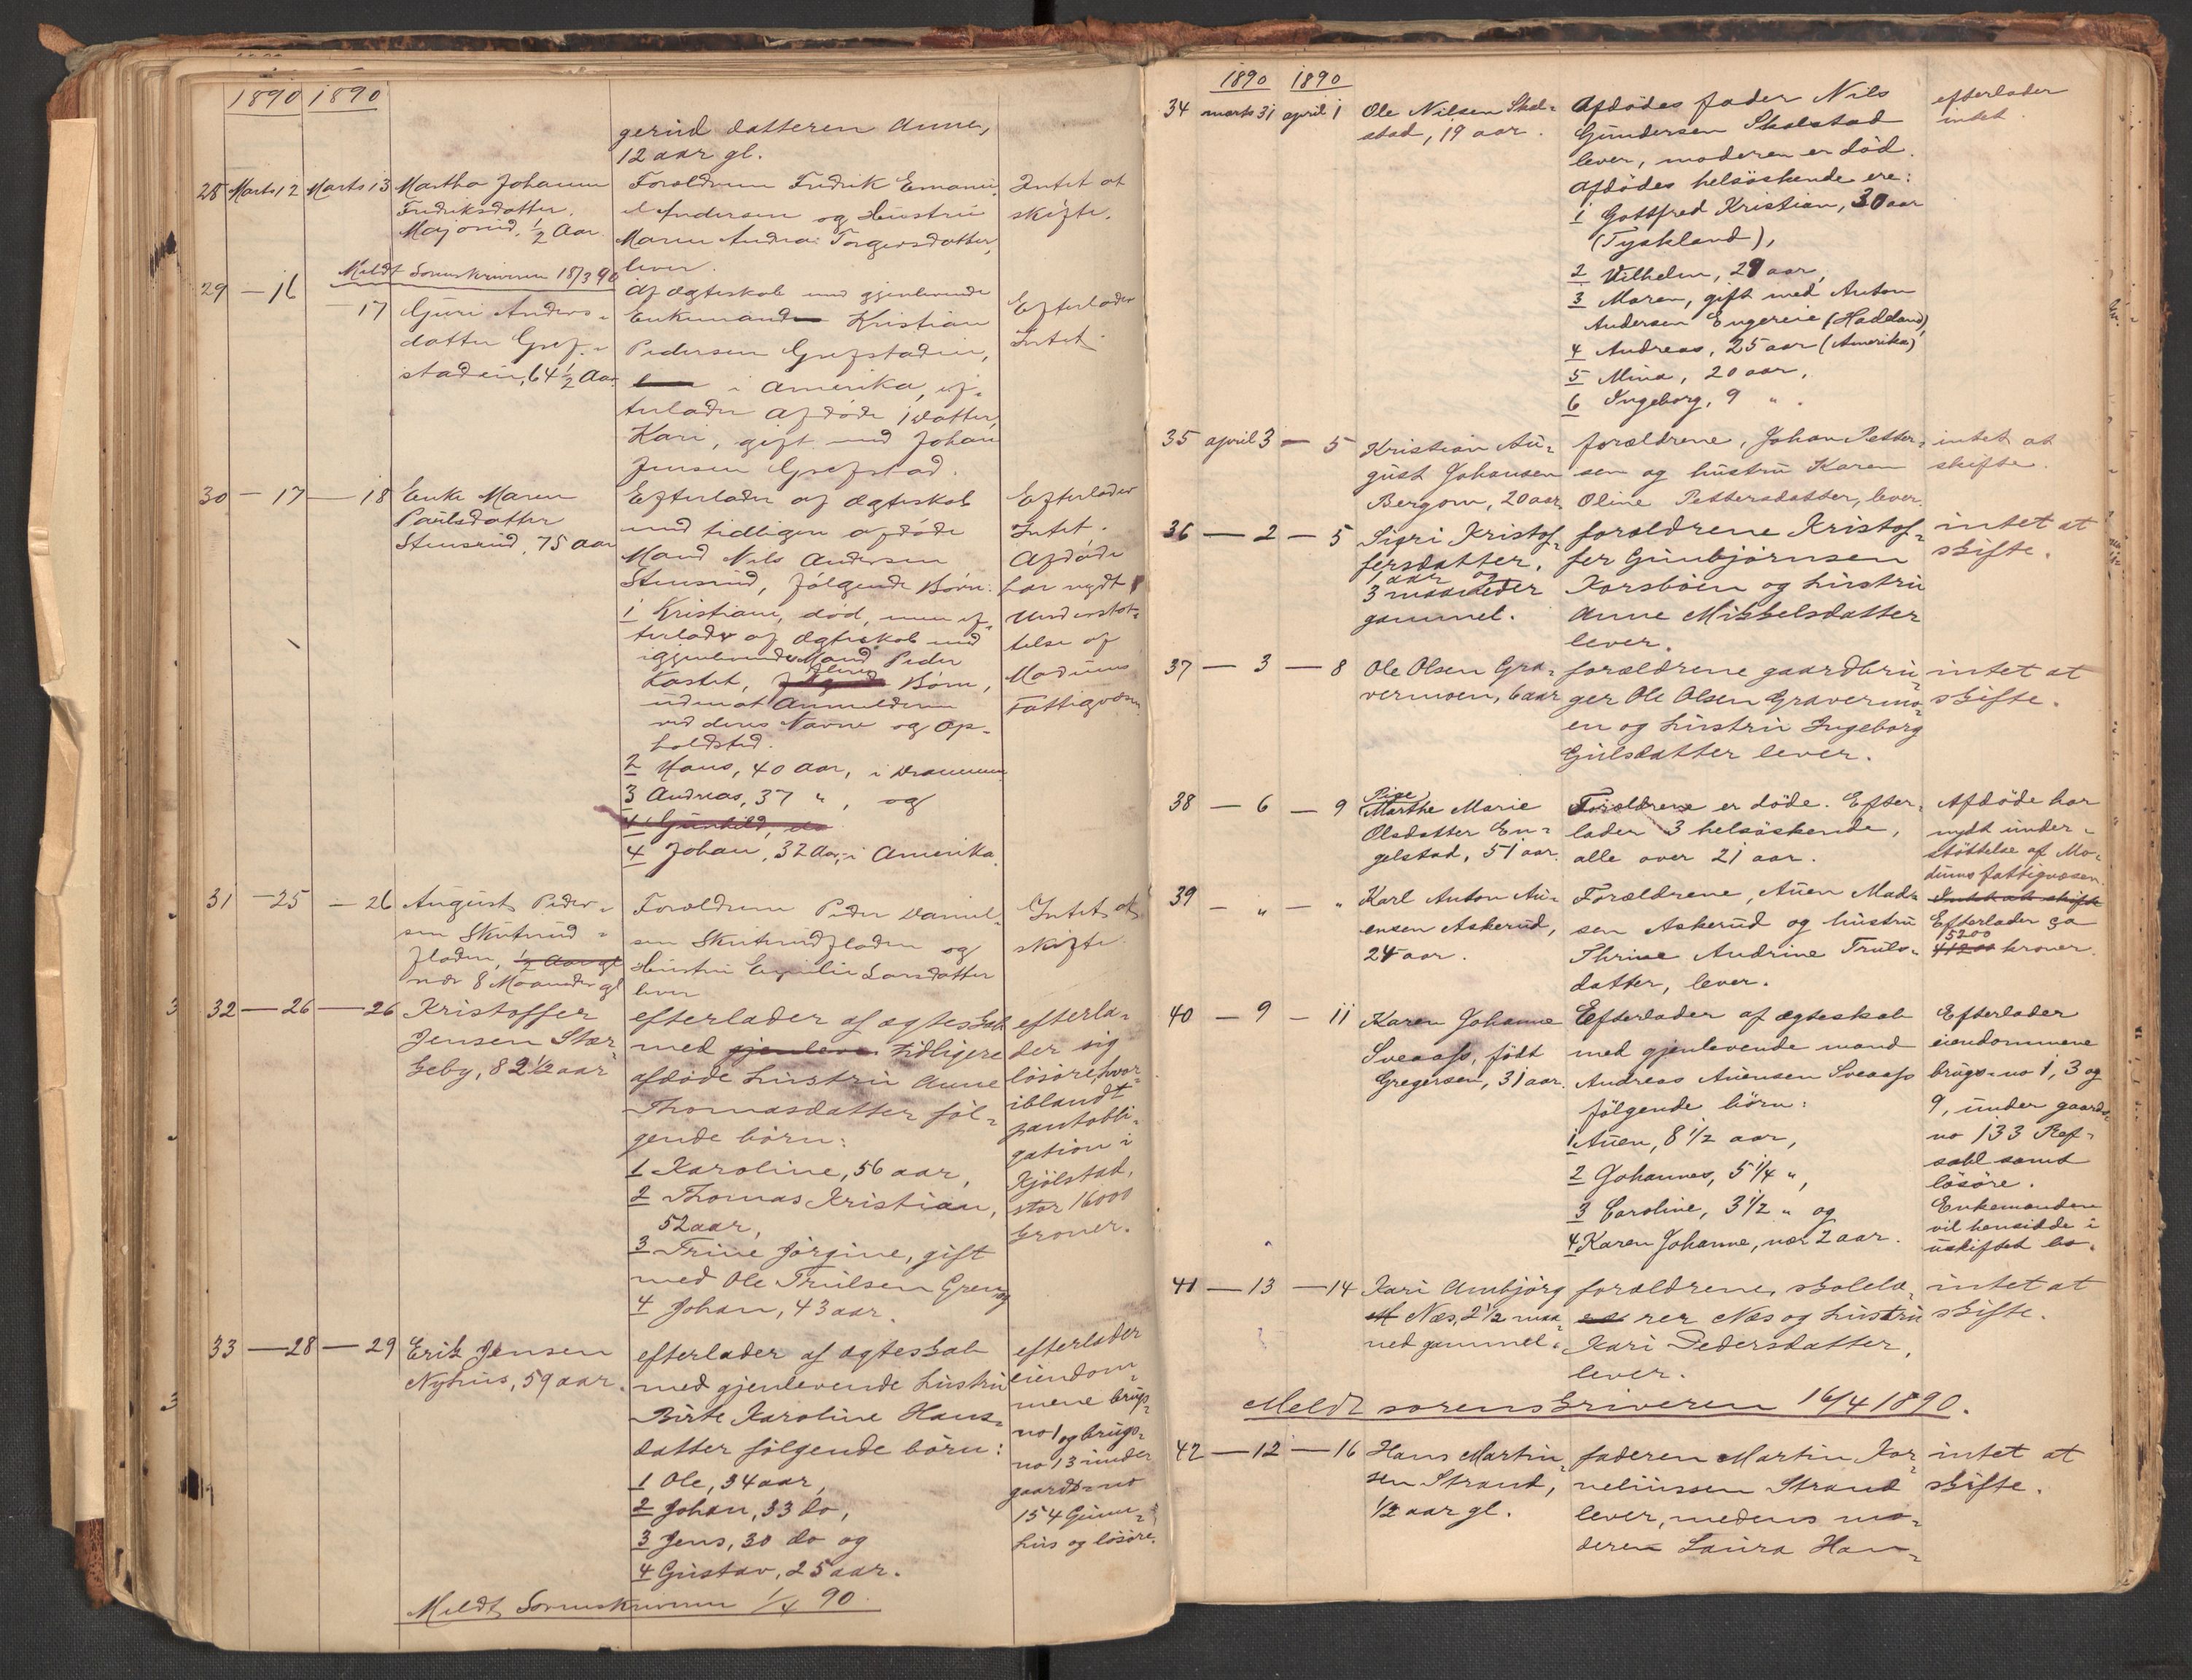 1890 1890
gerud datteren Anne,
12 aar gl.
28 Marts 12 Marts 13 Martha Johanne
Fredriksdatter
Majorud, 1/2 Aar.
Forældrene Fredrik Emanu-
el Andersen og Hustru
Maren Andrea Torgersdatter,
lever.
Intet at
skifte.
Meldt Sorenskriveren 18/3 90
29 — 16 — 17 Guri Anders-
datter Gref-
stadeie, 64 1/2 Aar
Af Ægteskab med gjenlevende
Enkemand Kristian
Pedersen Grefstadeie,
i Amerika, ef-
terlader Afdøde 1 Datter,
Kari, gift med Johan
Jensen Grefstad.
Efterlader
Intet.
30 — 17 — 18 Enke Maren
Paulsdatter
Stensrud, 75 aar
Efterlader af Ægteskab
med tidligere afdøde
Mand Nils Andersen
Stensrud, følgende Børn:
1 Kristiane, død, men ef-
terlader af Ægteskab med
igjenlevende Mand Peder
Kastet, flere Børn,
uden at Anmelderen
ved deres Navne og Op-
holdsted.
2 Hans, 40 Aar, i Drammen
3 Andreas, 37 " , og
4 Gunhild, do
4 Johan, 32 Aar, i Amerika.
Efterlader
Intet.
Afdøde
har nydt
Understøt-
telse af
Modums
Fattigvæsen
31 — 25 — 26 August Peder-
sen Skuterud-
fladen, 1/2 Aar gl
nær 8 Maaneder gl
Forældrene Peder Daniel-
sen Skuterudfladen og
Hustru Emilie Larsdatter
lever
Intet at
skifte.
32 — 26 — 26 Kristoffer
Jensen Stær-
keby, 82 1/2 aar
efterlader af ægteskab
med gjenleve. tidligere
afdøde hustru Anne
Thomasdatter føl-
gende børn:
1 Karoline, 56 aar,
2 Thomas Kristian,
52 aar,
3 Trine Jørgine, gift
med Ole Trulsen Gren, og
4 Johan, 43 aar.
efterla-
der sig
løsøre, hvor-
iblandt
pantobli-
gation i
Kjølstad,
stor 1600
kroner.
33 — 28 — 29 Erik Jensen
Nyhus, 59 aar.
efterlader af ægteskab
med gjenlevende hustru
Birte Karoline Hans-
datter følgende børn:
1 Ole, 34 aar,
2 Johan, 33 do,
3 Jens, 30 do og
4 Gustav, 25 aar.
efterlader
eiendom-
mene brugs-
no 1 og brugs-
no 13 under
gaards-no
154 Gunn-
hus og løsøre.
Meldt Sorenskriveren 1/4 90
1890 1890
34 marts 31 april 1 Ole Nilsen Skal-
stad, 19 aar.
Afdødes fader Nils
Gundersen Skalstad
lever, moderen er død.
Afdødes helsøskende ere:
1 Gottfred Kristian, 30 aar
(Tyskland),
2 Vilhelm, 29 aar,
3 Maren, gift med Anton
Andersen Engereie (Haddeland)
4 Andreas, 25 aar (Amerika)
5 Mina, 20 aar,
6 Ingeborg, 9 " .
efterlader
intet.
35 april 3 — 5 Kristian Au-
gust Johansen
Bergom, 20 aar,
forældrene, Johan Petter-
sen og hustru Karen
Oline Pettersdatter, lever.
intet at
skifte.
36 — 2 — 5 Sigri Kristof-
fersdatter,
1 aar og
3 maaneder
gammel.
forældrene Kristof-
fer Gunbjørnsen
Korsbøen og hustru
Anne Mikkelsdatter
lever.
intet at
skifte.
37 — 3 — 8 Ole Olsen Gra-
vermoen, 6 aar
forældrene gaardbru-
ger Ole Olsen Gravermo-
en og hustru Ingeborg
Gulsdatter lever.
intet at
skifte.
38 — 6 — 9 Pige
Marthe Marie
Olsdatter En-
gelstad, 51 aar.
Forældrene er døde. Efter-
lader 3 helsøskende,
alle over 21 aar.
Afdøde har
nydt under-
støttelse af Mo-
dums fattigvæsen.
39 — " — " Karl Anton Au-
ensen Askerud,
24 aar.
Forældrene, Auen Mad-
sen Askerud og hustru
Thrine Andrine Truls-
datter, lever.
Intet at skifte
Efterlader ca
15200
kroner.
40 — 9 — 11 Karen Johanne
Sveaass, født
Gregersen, 31 aar.
Efterlader af ægteskab
med gjenlevende mand
Andreas Auensen Sveaass
følgende børn:
1 Auen, 8 1/2 aar,
2 Johannes, 5 1/4 ",
3 Caroline, 3 1/2 " og
4 Karen Johanne, nær 2 aar.
Efterlader
eiendommene
brugs-no 1, 3 og
9, under gaards-
no 133 Ref-
sahl samt
løsøre.
Enkemanden
vil hensidde i
uskiftet bo.
41 — 13 — 14 Kari Ambjørg
Næs, 2 1/2 maa-
ned gammel.
forældrene, skolelæ-
rer Næs og hustru
Kari Pedersdatter,
lever.
intet at
skifte.
Meldt sorenskriveren 16/4 1890.
42 — 12 — 16 Hans Martin-
sen Strand,
1/2 aar gl.
faderen Martin Kor-
neliussen Strand
lever, medens mo-
deren Laura Han-
intet at
skifte.